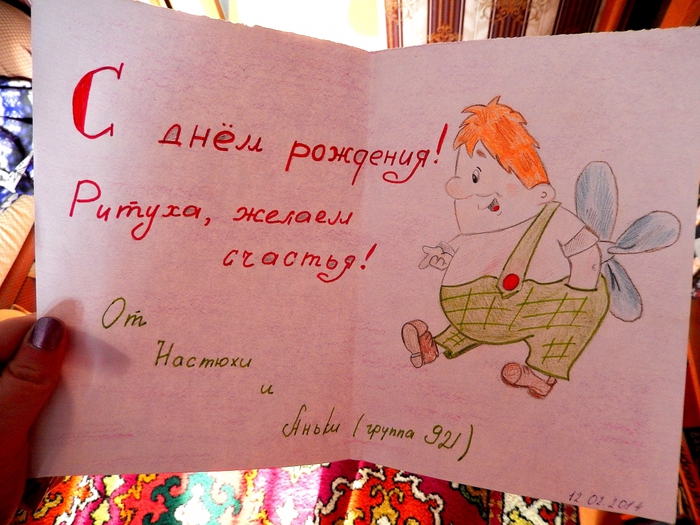 С днём рождения!
Ритуха, желаем
счастья!
От
Настюхи
и
Аньки (группа 921)
12.02.2014